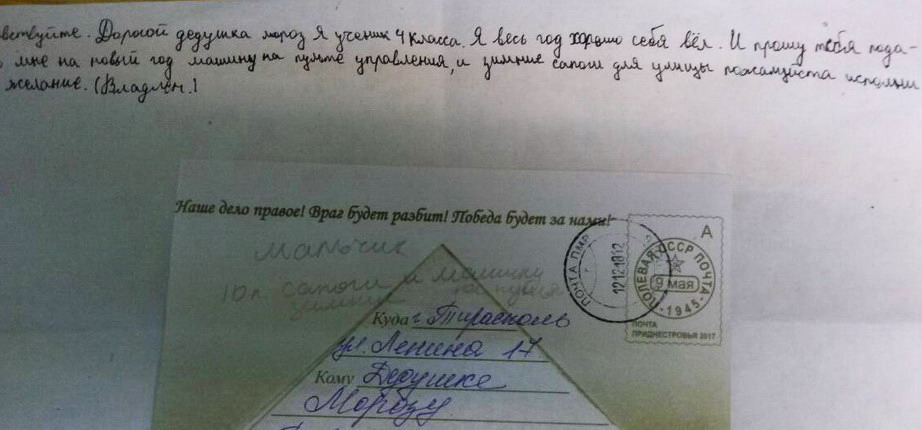 вствуйте. Дорогой дедушка мороз Я ученик 4 класса. Я весь год хорошо себя вёл. И прошу тебя пода-
мне на новый год машину на пумте управления, и зимние сапоги для улицы пожалуйста исполни
желание. (Владлен.)
Наше дело правое! Враг будет разбит! Победа будет за нами!
мальчик
10 л. сапоги и машину
зимние
Куда г. Тирасполь
ул. Ленина 17
Кому Дедушке
Морозу
ПОЧТА ПМР
12 12 18 12
А
ПОЛЕВАЯ СССР ПОЧТА
9 мая
-1945-
ПОЧТА
ПРИДНЕСТРОВЬЯ 2017